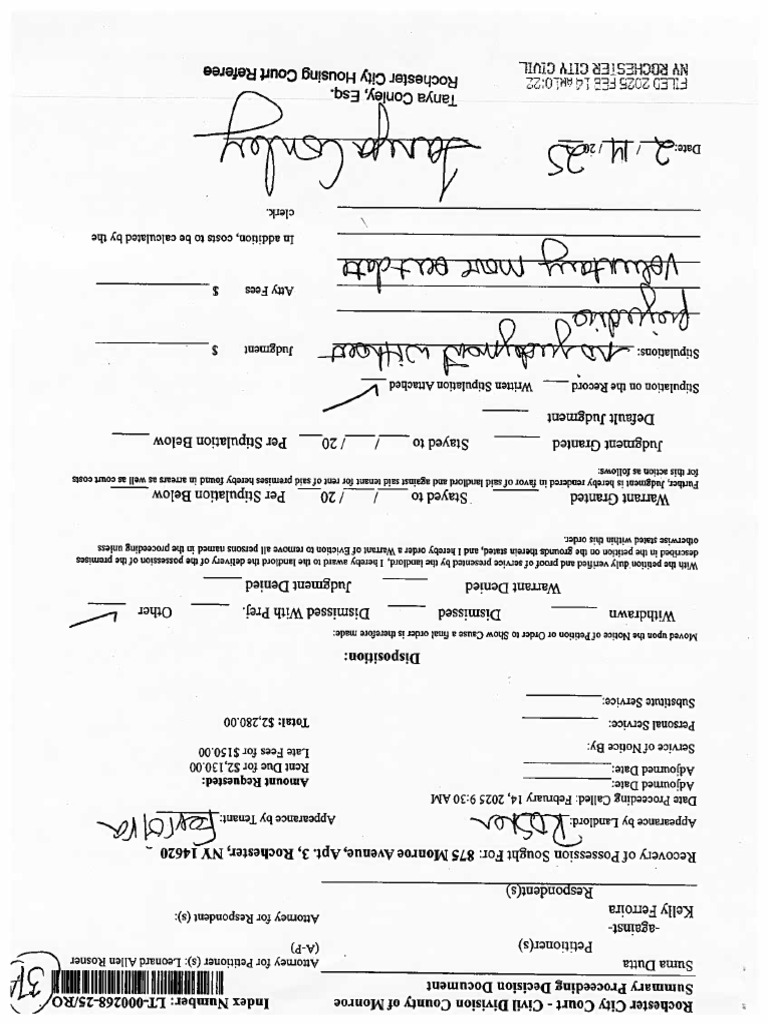 Rochester City Court - Civil Division County of Monroe
Summary Proceeding Decision Document
Index Number: LT-000268-25/RO
37A
Suma Dutta
Petitioner(s)
-against-
Kelly Ferroira
Respondent(s)
Attorney for Petitioner (s): Leonard Allen Rosner
(A-P)
Attorney for Respondent (s):
Recovery of Possession Sought For: 875 Monroe Avenue, Apt. 3, Rochester, NY 14620
Appearance by Landlord: Rosner
Appearance by Tenant: Ferroira
Date Proceeding Called: February 14, 2025 9:30 AM
Adjourned Date:
Adjourned Date:
Service of Notice By:
Personal Service:
Substitute Service:
Amount Requested:
Rent Due for $2,130.00
Late Fees for $150.00
Total: $2,280.00
Disposition:
Moved upon the Notice of Petition or Order to Show Cause a final order is therefore made:
Withdrawn Dismissed Dismissed With Prej. Other ✓
Warrant Denied Judgment Denied
With the petition duly verified and proof of service presented by the landlord, I hereby award to the landlord the delivery of the possession of the premises
described in the petition on the grounds therein stated, and I hereby order a Warrant of Eviction to remove all persons named in the proceeding unless
otherwise stated within this order.
Warrant Granted Stayed to / / 20 Per Stipulation Below
Further, Judgment is hereby rendered in favor of said landlord and against said tenant for rent of said premises hereby found in arrears as well as court costs
for this action as follows:
Judgment Granted Stayed to / / 20 Per Stipulation Below
Default Judgment
Stipulation on the Record Written Stipulation Attached ✓
Stipulations: no judgment without
prejudice
voluntary move out date
Judgment $
Atty Fees $
In addition, costs to be calculated by the
clerk.
Date: 2/14/2025
Tanya Conley
Tanya Conley, Esq.
Rochester City Housing Court Referee
FILED 2025 FEB 14 AM10:22
NY ROCHESTER CITY CIVIL